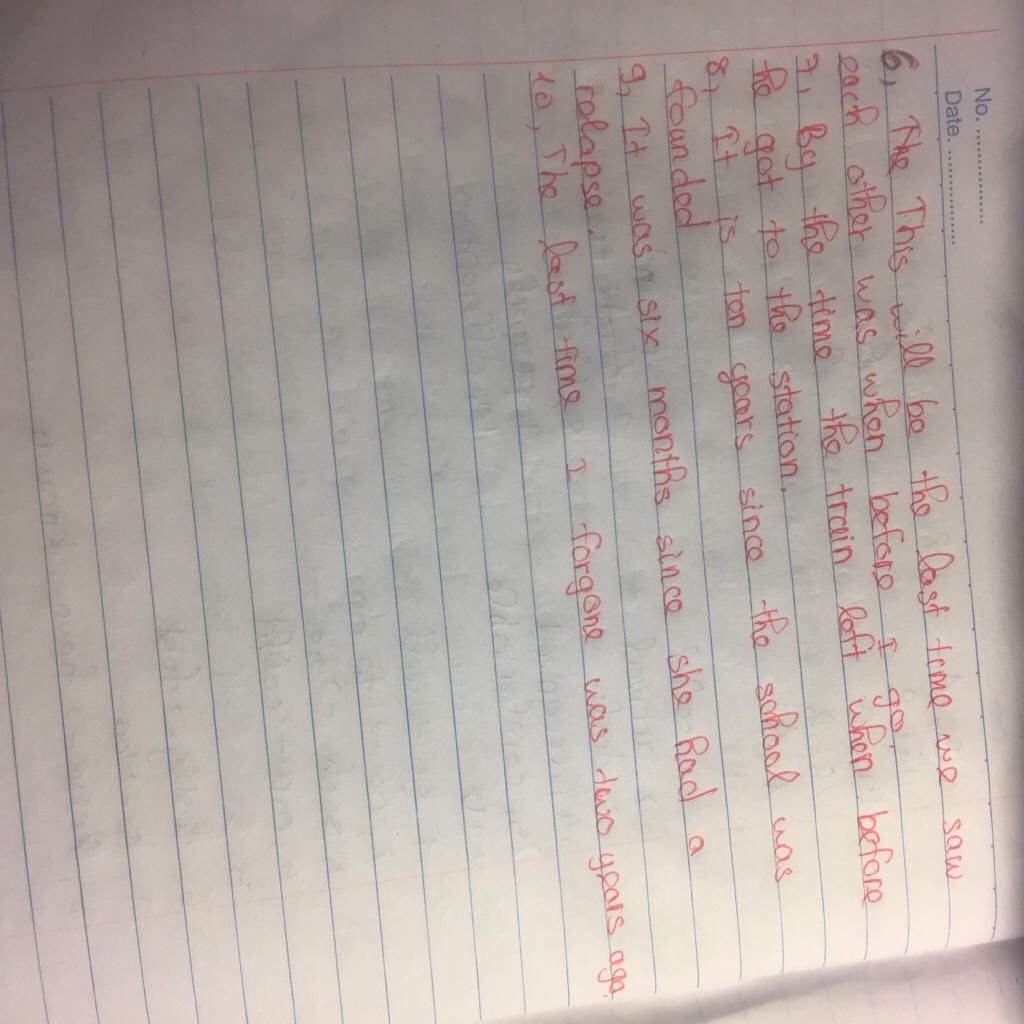 No. ................
Date. ................
6, The This will be the last time we saw
each other was when before I go.
7, By the time the train left when before
he got to the station.
8, It is ten years since the school was
founded
9, It was six months since she had a
relapse.
10, The last time I forgone was two years ago.